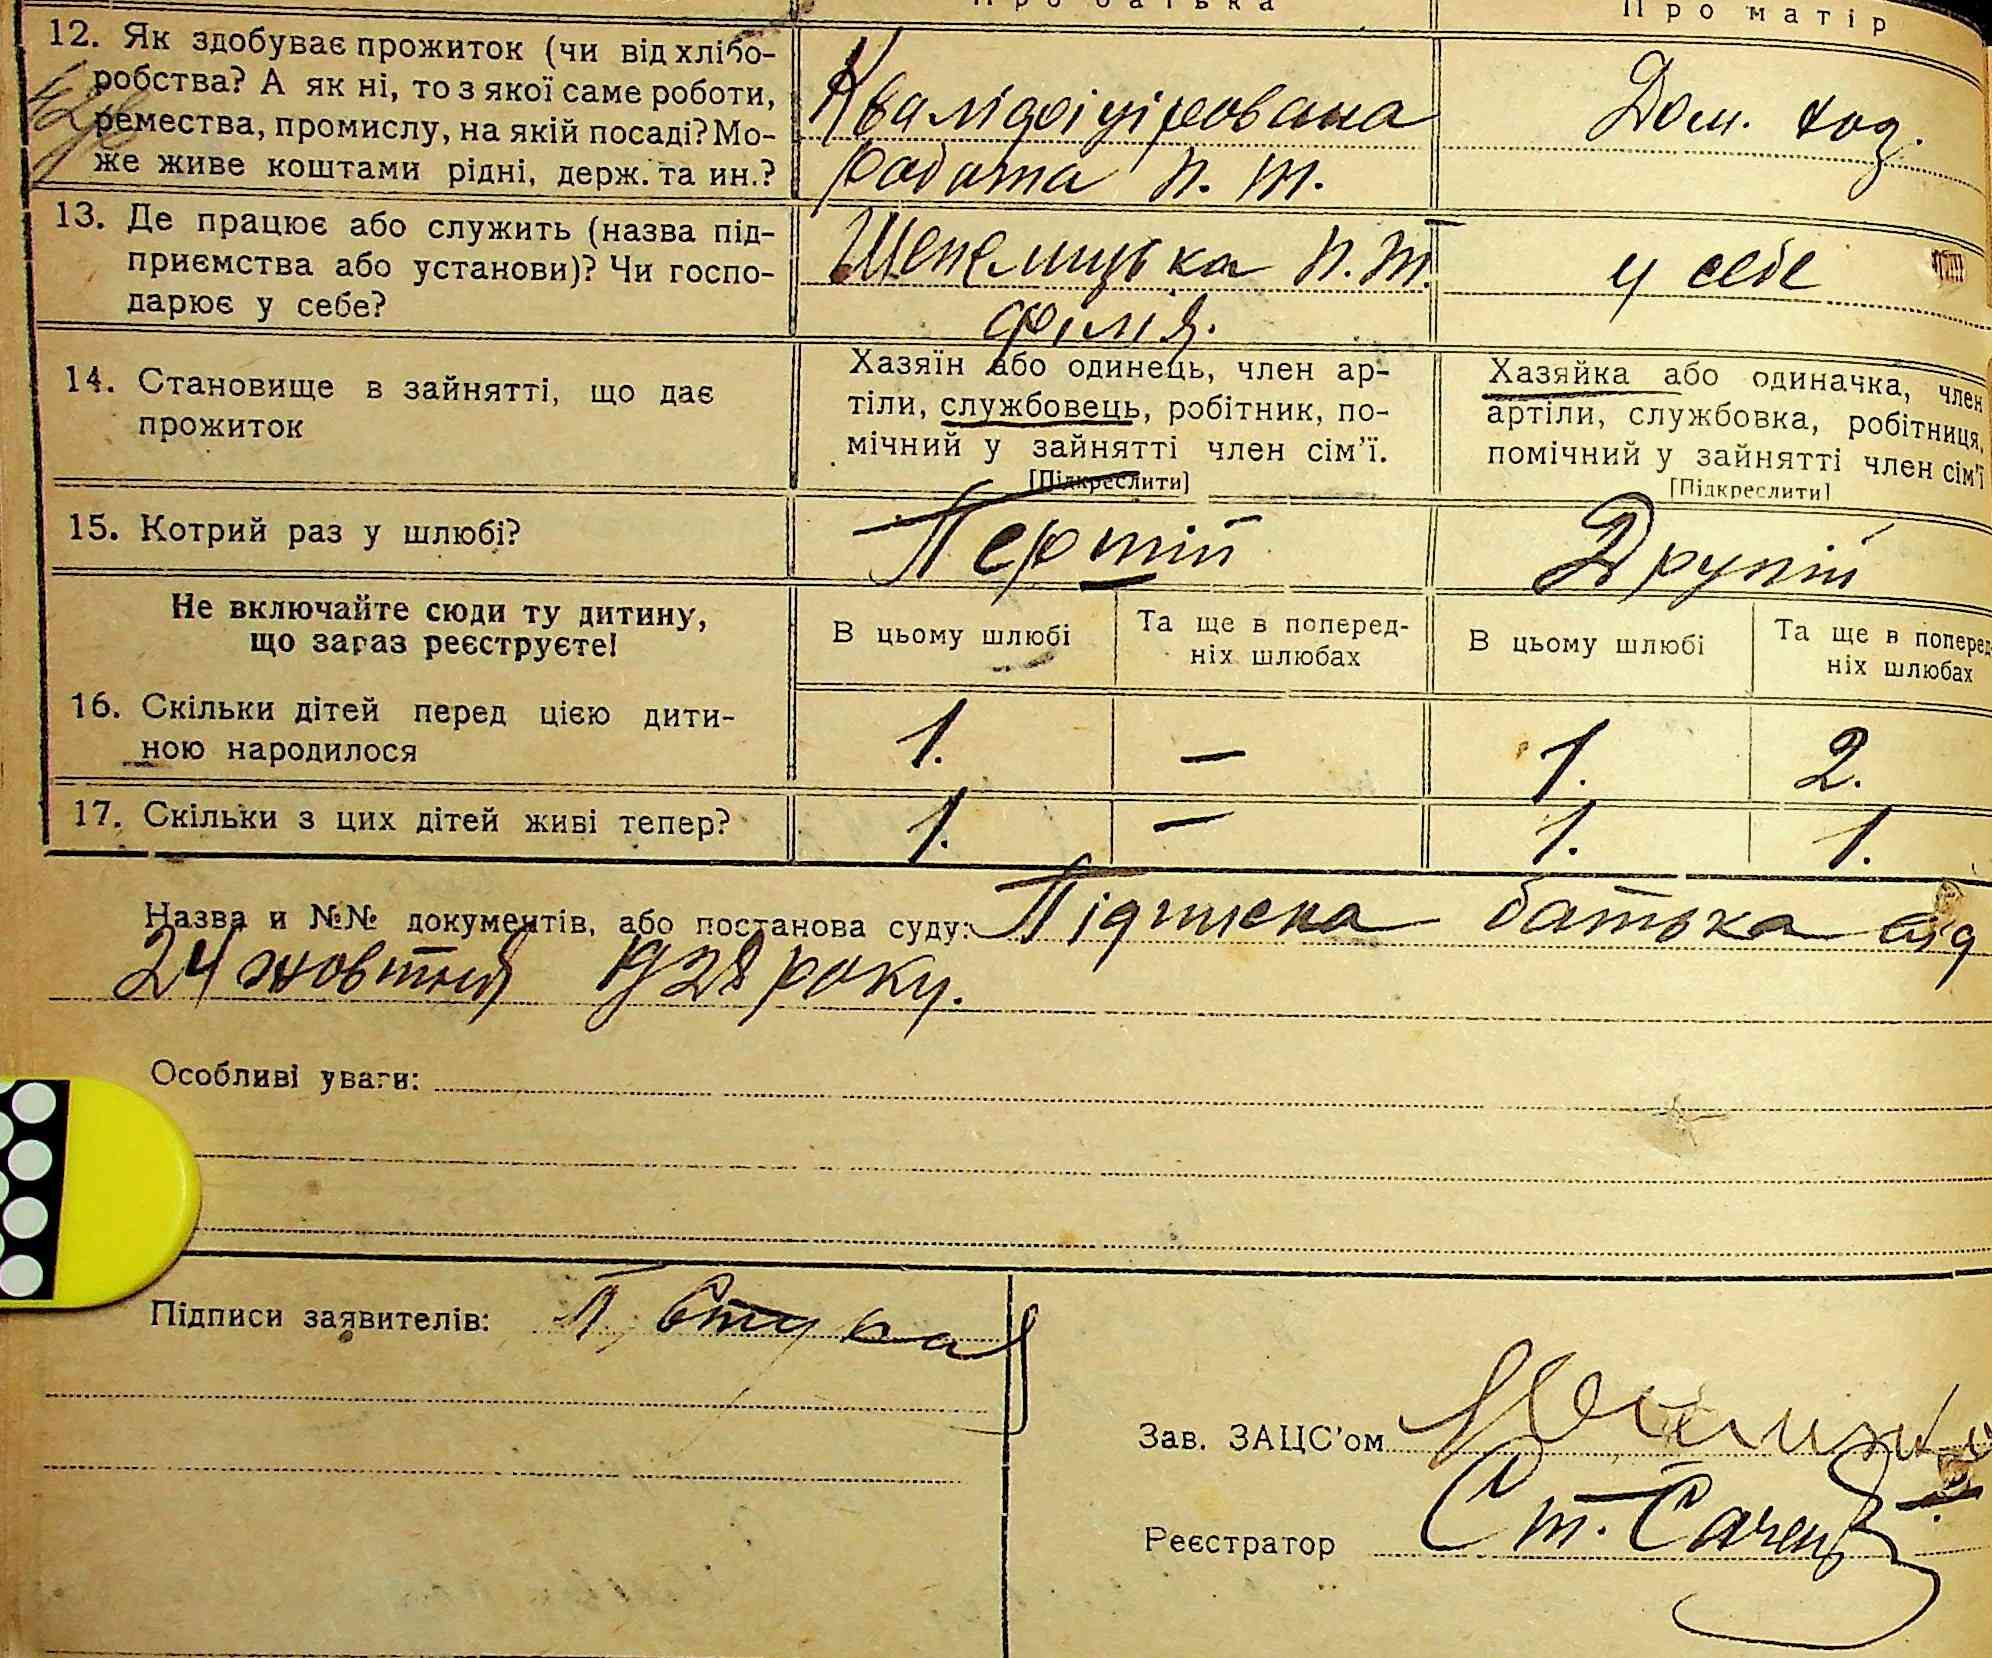 Про батька Про матір
12. Як здобуває прожиток (чи від хлібо-
робства? А як ні, то з якої саме роботи,
ремества, промислу, на якій посаді? Мо-
же живе коштами рідні, держ. та ин.?
Кваліфіцірована
работа п. т.
Дом. хоз.
13. Де працює або служить (назва під-
приємства або установи)? Чи госпо-
дарює у себе?
Шепелицька п. т.
філія.
у себе
14. Становище в зайнятті, що дає
прожиток
Хазяїн або одинець, член ар-
тіли, службовець, робітник, по-
мічний у зайнятті член сім'ї.
[Підкреслити]
Хазяйка або одиначка, член
артіли, службовка, робітниця,
помічний у зайнятті член сім'ї
[Підкреслити]
15. Котрий раз у шлюбі?
Першій
Другій
Не включайте сюди ту дитину,
що зараз реєструєте!
В цьому шлюбі
Та ще в поперед-
ніх шлюбах
В цьому шлюбі
Та ще в поперед-
ніх шлюбах
16. Скільки дітей перед цією дити-
ною народилося
1. — 1. 2.
17. Скільки з цих дітей живі тепер?
1. — 1. 1.
Назва и №№ документів, або постанова суду: Підписка батька від
24 жовтня 1928 року.
Особливі уваги:
Підписи заявителів:
Зав. ЗАЦС'ом
Реєстратор Ст.